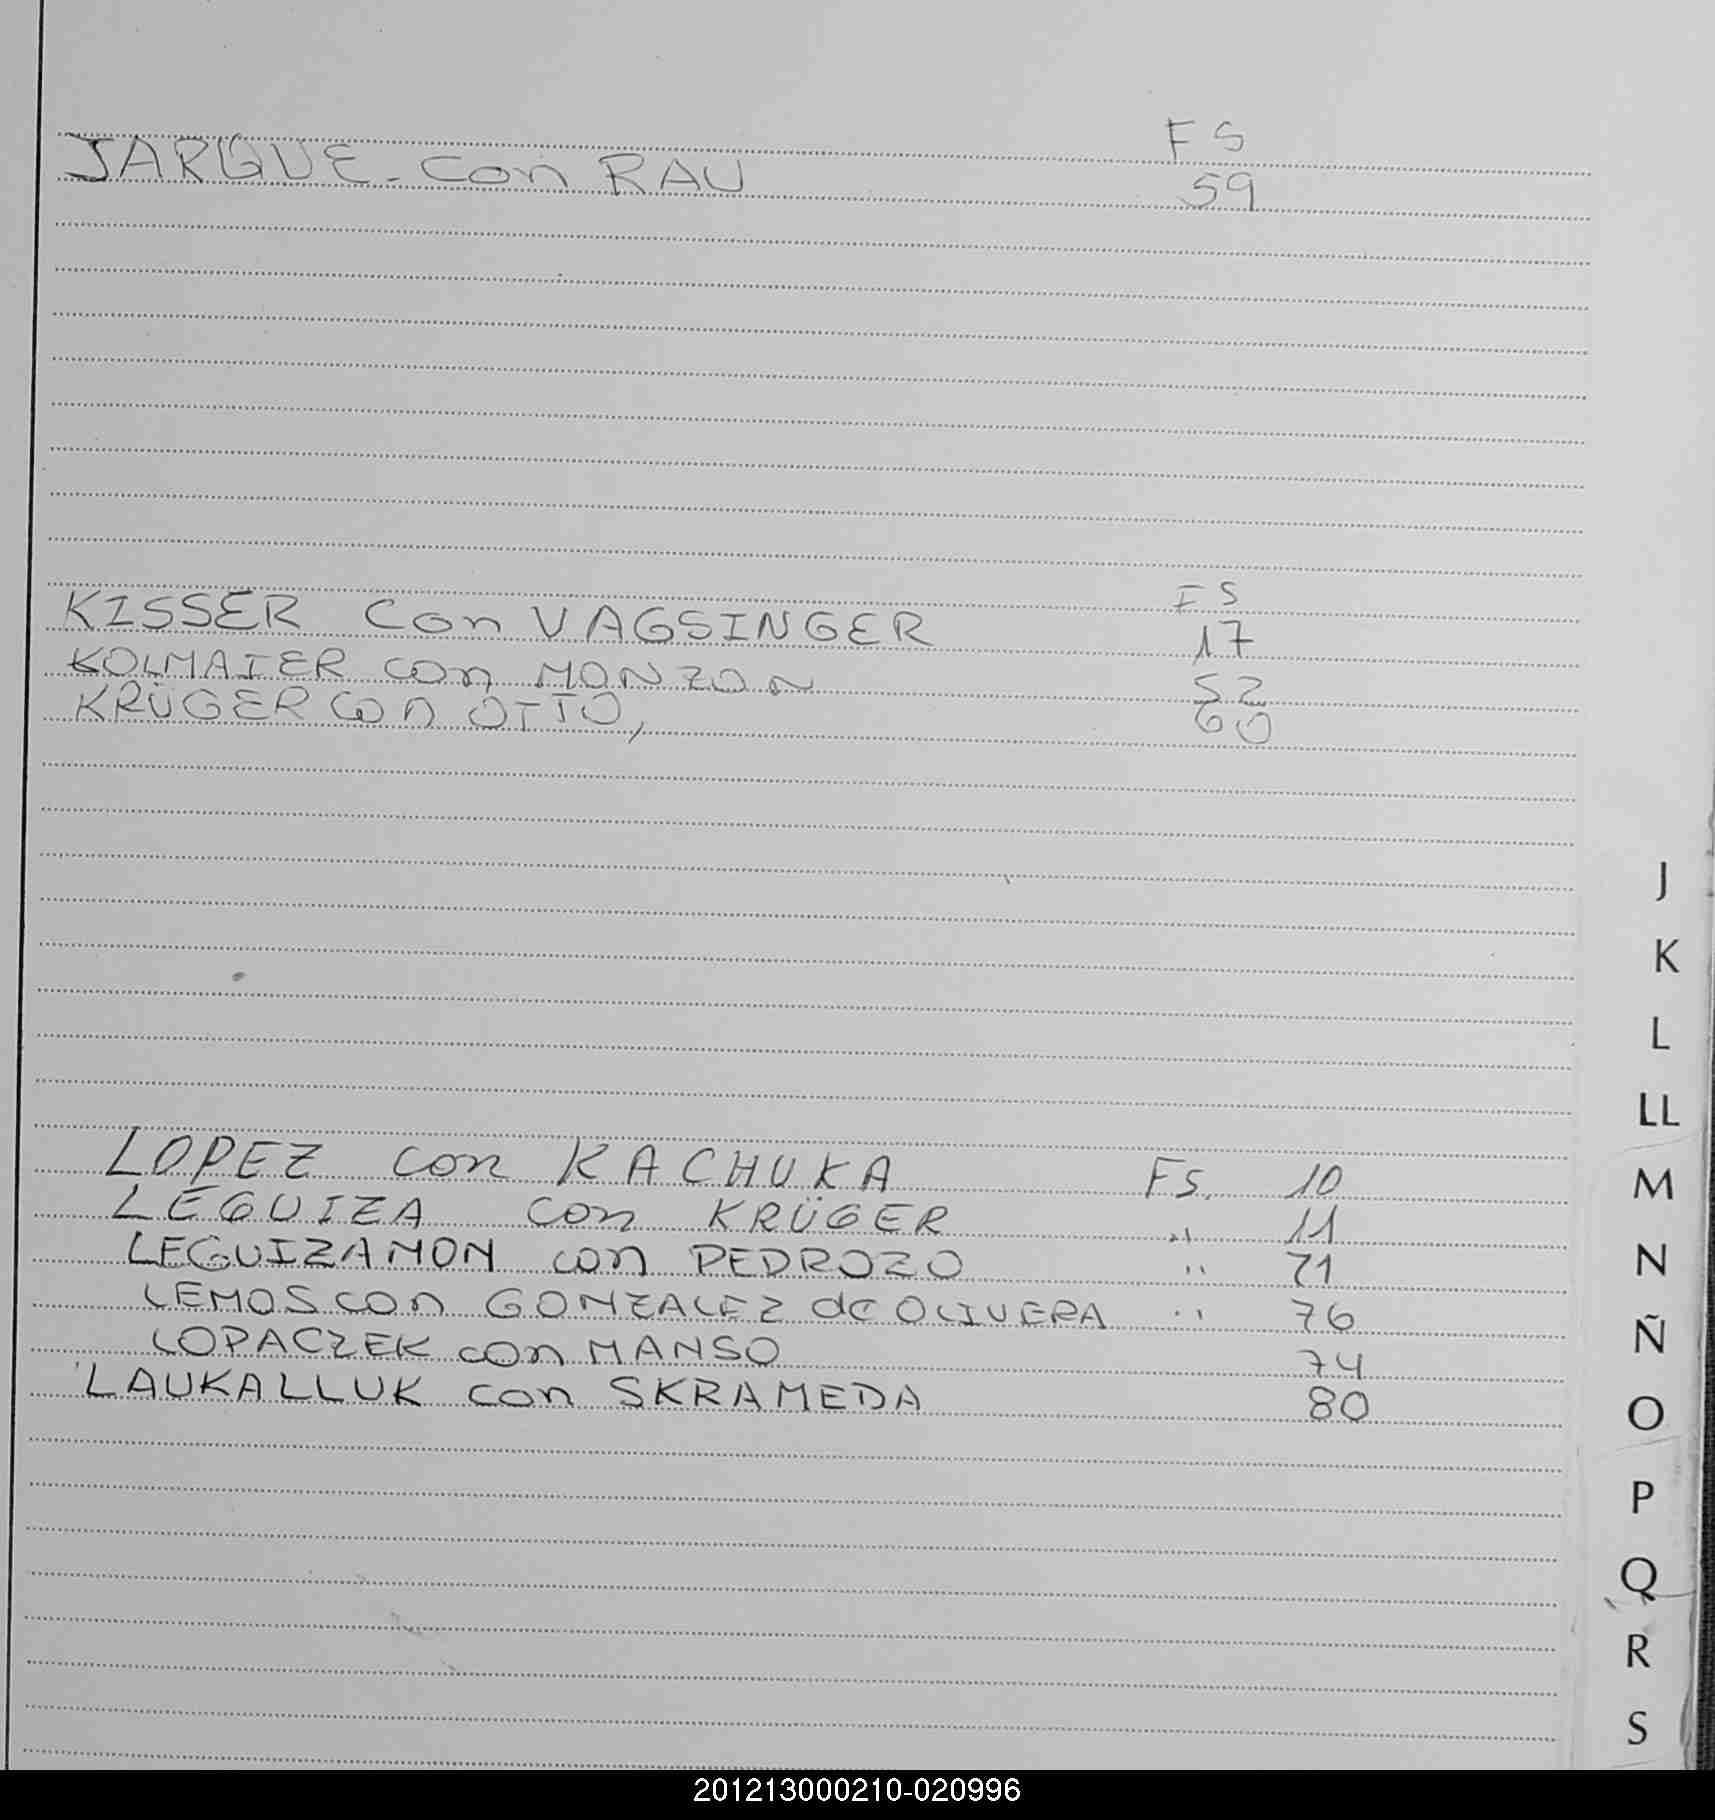 FS
JARQUE - con RAU 59
FS
KISSER con VAGSINGER 17
KOLMAIER con MONZON 52
KRÜGER con OTTO, 60
LOPEZ con KACHUKA FS. 10
LEGUIZA con KRÜGER " 11
LEGUIZAMON con PEDROZO " 71
LEMOS con GONZALEZ de OLIVERA " 76
LOPACZEK con MANSO 74
LAUKALLUK con SKRAMEDA 80
J
K
L
LL
M
N
Ñ
O
P
Q
R
S
201213000210-020996